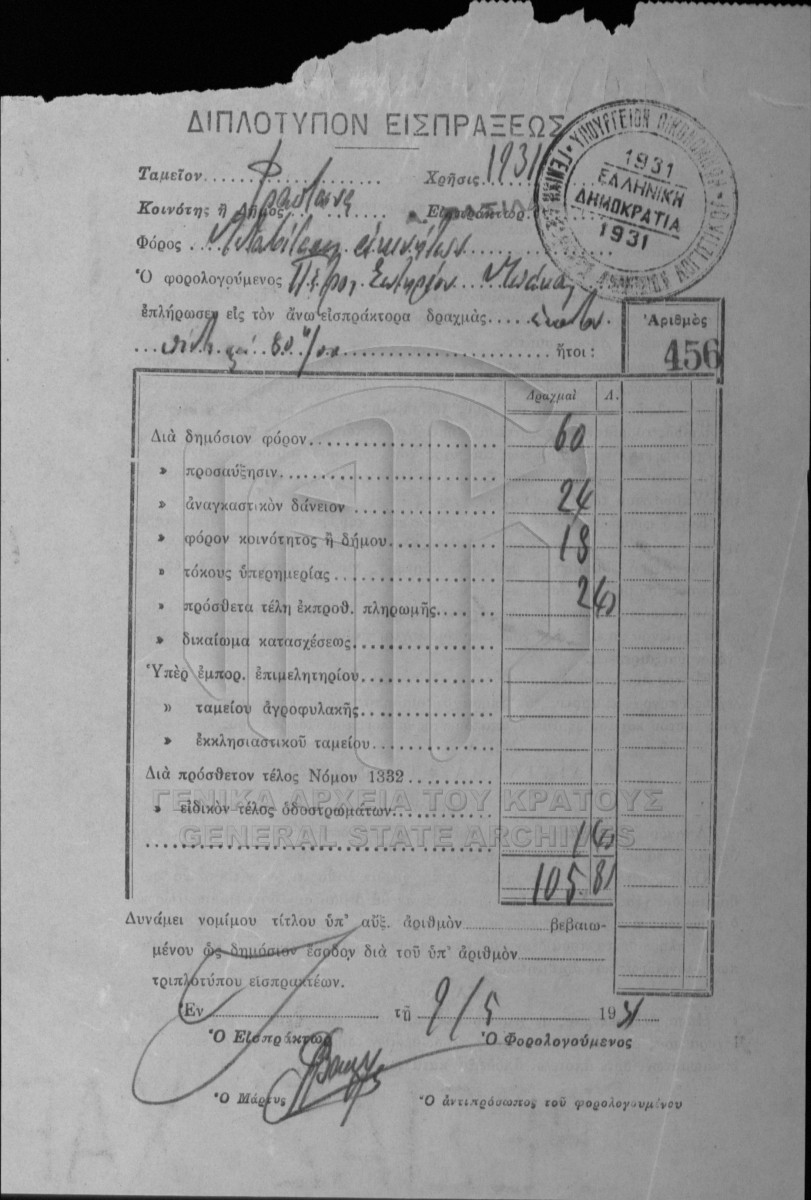 ΔΙΠΛΟΤΥΠΟΝ ΕΙΣΠΡΑΞΕΩΣ
Ταμεῖον Χρῆσις 1931
Κοινότης ἢ Δῆμος Εἰσπράκτωρ
Φόρος
Ὁ φορολογούμενος Πέτρος Σωτηρίου
ἐπλήρωσεν εἰς τὸν ἄνω εἰσπράκτορα δραχμὰς ἑκατὸν
πέντε καὶ 80/00 ἤτοι:
ΥΠΟΥΡΓΕΙΟΝ ΟΙΚΟΝΟΜΙΚΩΝ
1931
ΕΛΛΗΝΙΚΗ
ΔΗΜΟΚΡΑΤΙΑ
1931
Ἀριθμὸς
456
Δραχμαὶ Λ.
Διὰ δημόσιον φόρον 60
» προσαύξησιν
» ἀναγκαστικὸν δάνειον 24
» φόρον κοινότητος ἢ δήμου 18
» τόκους ὑπερημερίας
» πρόσθετα τέλη ἐκπροθ. πληρωμῆς 2 40
» δικαίωμα κατασχέσεως
Ὑπὲρ ἐμπορ. ἐπιμελητηρίου
» ταμείου ἀγροφυλακῆς
» ἐκκλησιαστικοῦ ταμείου
Διὰ πρόσθετον τέλος Νόμου 1332
ΓΕΝΙΚΑ ΑΡΧΕΙΑ ΤΟΥ ΚΡΑΤΟΥΣ
» εἰδικὸν τέλος ὁδοστρωμάτων
GENERAL STATE ARCHIVES
1 40
105.80
Δυνάμει νομίμου τίτλου ὑπ' αὔξ. ἀριθμὸν βεβαιω-
μένου ὡς δημόσιον ἔσοδον διὰ τοῦ ὑπ' ἀριθμὸν
τριπλοτύπου εἰσπρακτέων.
Ἐν τῇ 9/5 1931
Ὁ Εἰσπράκτωρ Ὁ Φορολογούμενος
Ὁ Μάρτυς Ὁ ἀντιπρόσωπος τοῦ φορολογουμένου